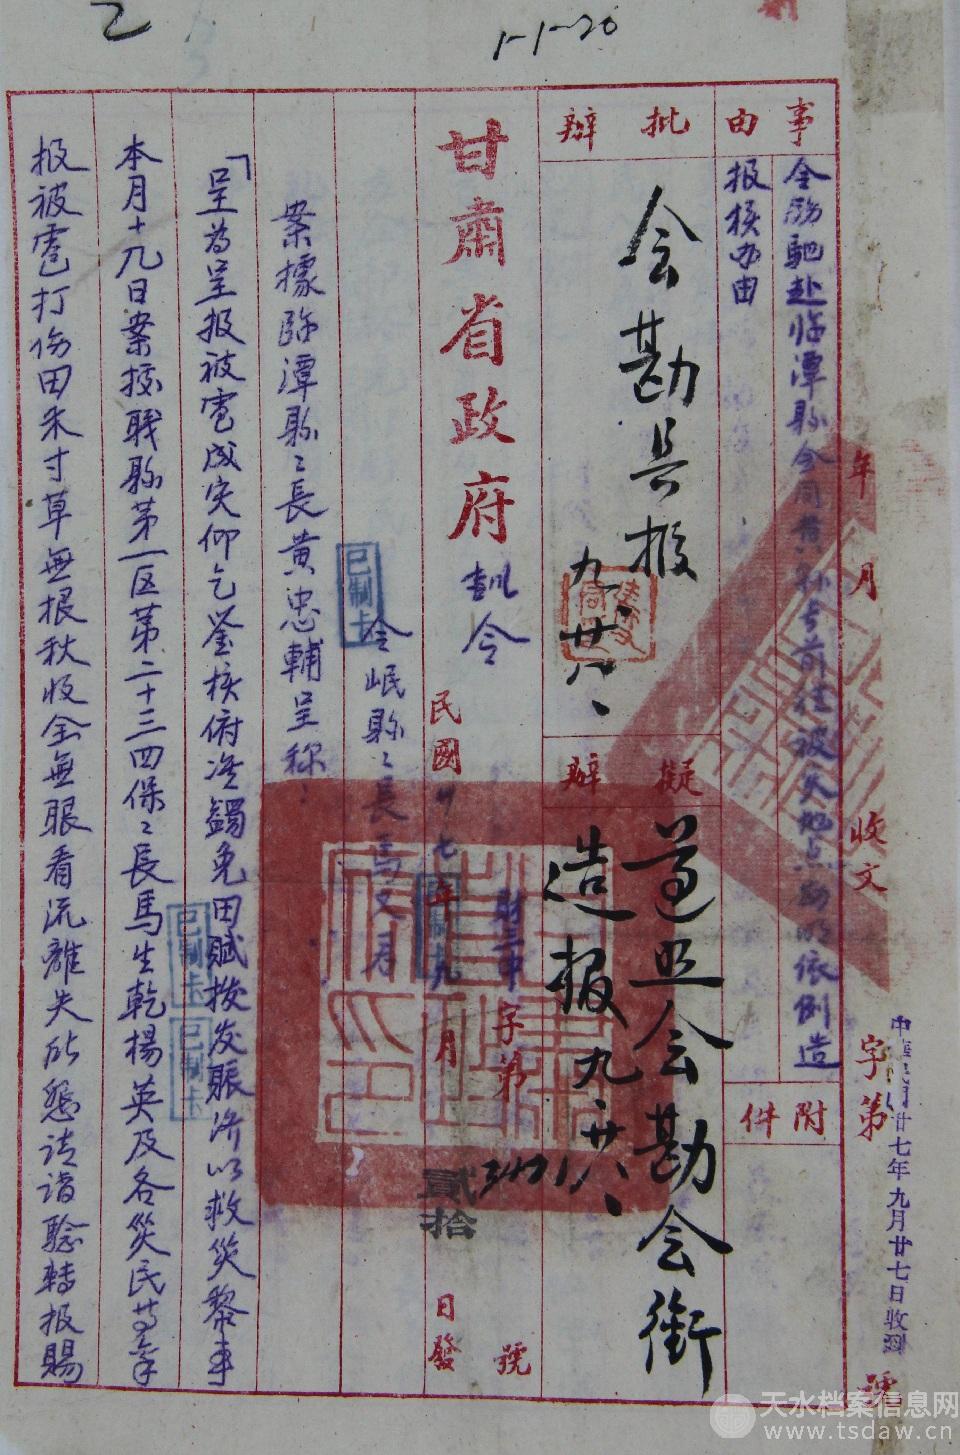 乙
1-1-20
事由
令 馳赴临潭縣会同黄縣長前往被災地点勘明依例造
报核办由
附件
批辦
会勘具报
九、廿八、
擬辦
遵照会勘会銜
造报
九、廿八、
甘肅省政府
訓令
財三申
字第
號
民國卅七年九月
貳拾
日發
令岷縣縣長馬
案據临潭縣縣長黄忠輔呈称：
「呈為呈报被雹成灾仰乞鉴核俯准蠲免田赋拨发赈济以救災黎事
本月十九日案據职縣第一区第二十三四保保長馬生乾楊英及各災民等
报被雹打伤田禾寸草無根秋收全無眼看流離失所恳请 转报賜
已制卡
已制卡
已制卡
已制卡
年月
收文
字第
號
中華民國卅七年九月廿七日收到
天水档案信息网
www.tsdaw.cn